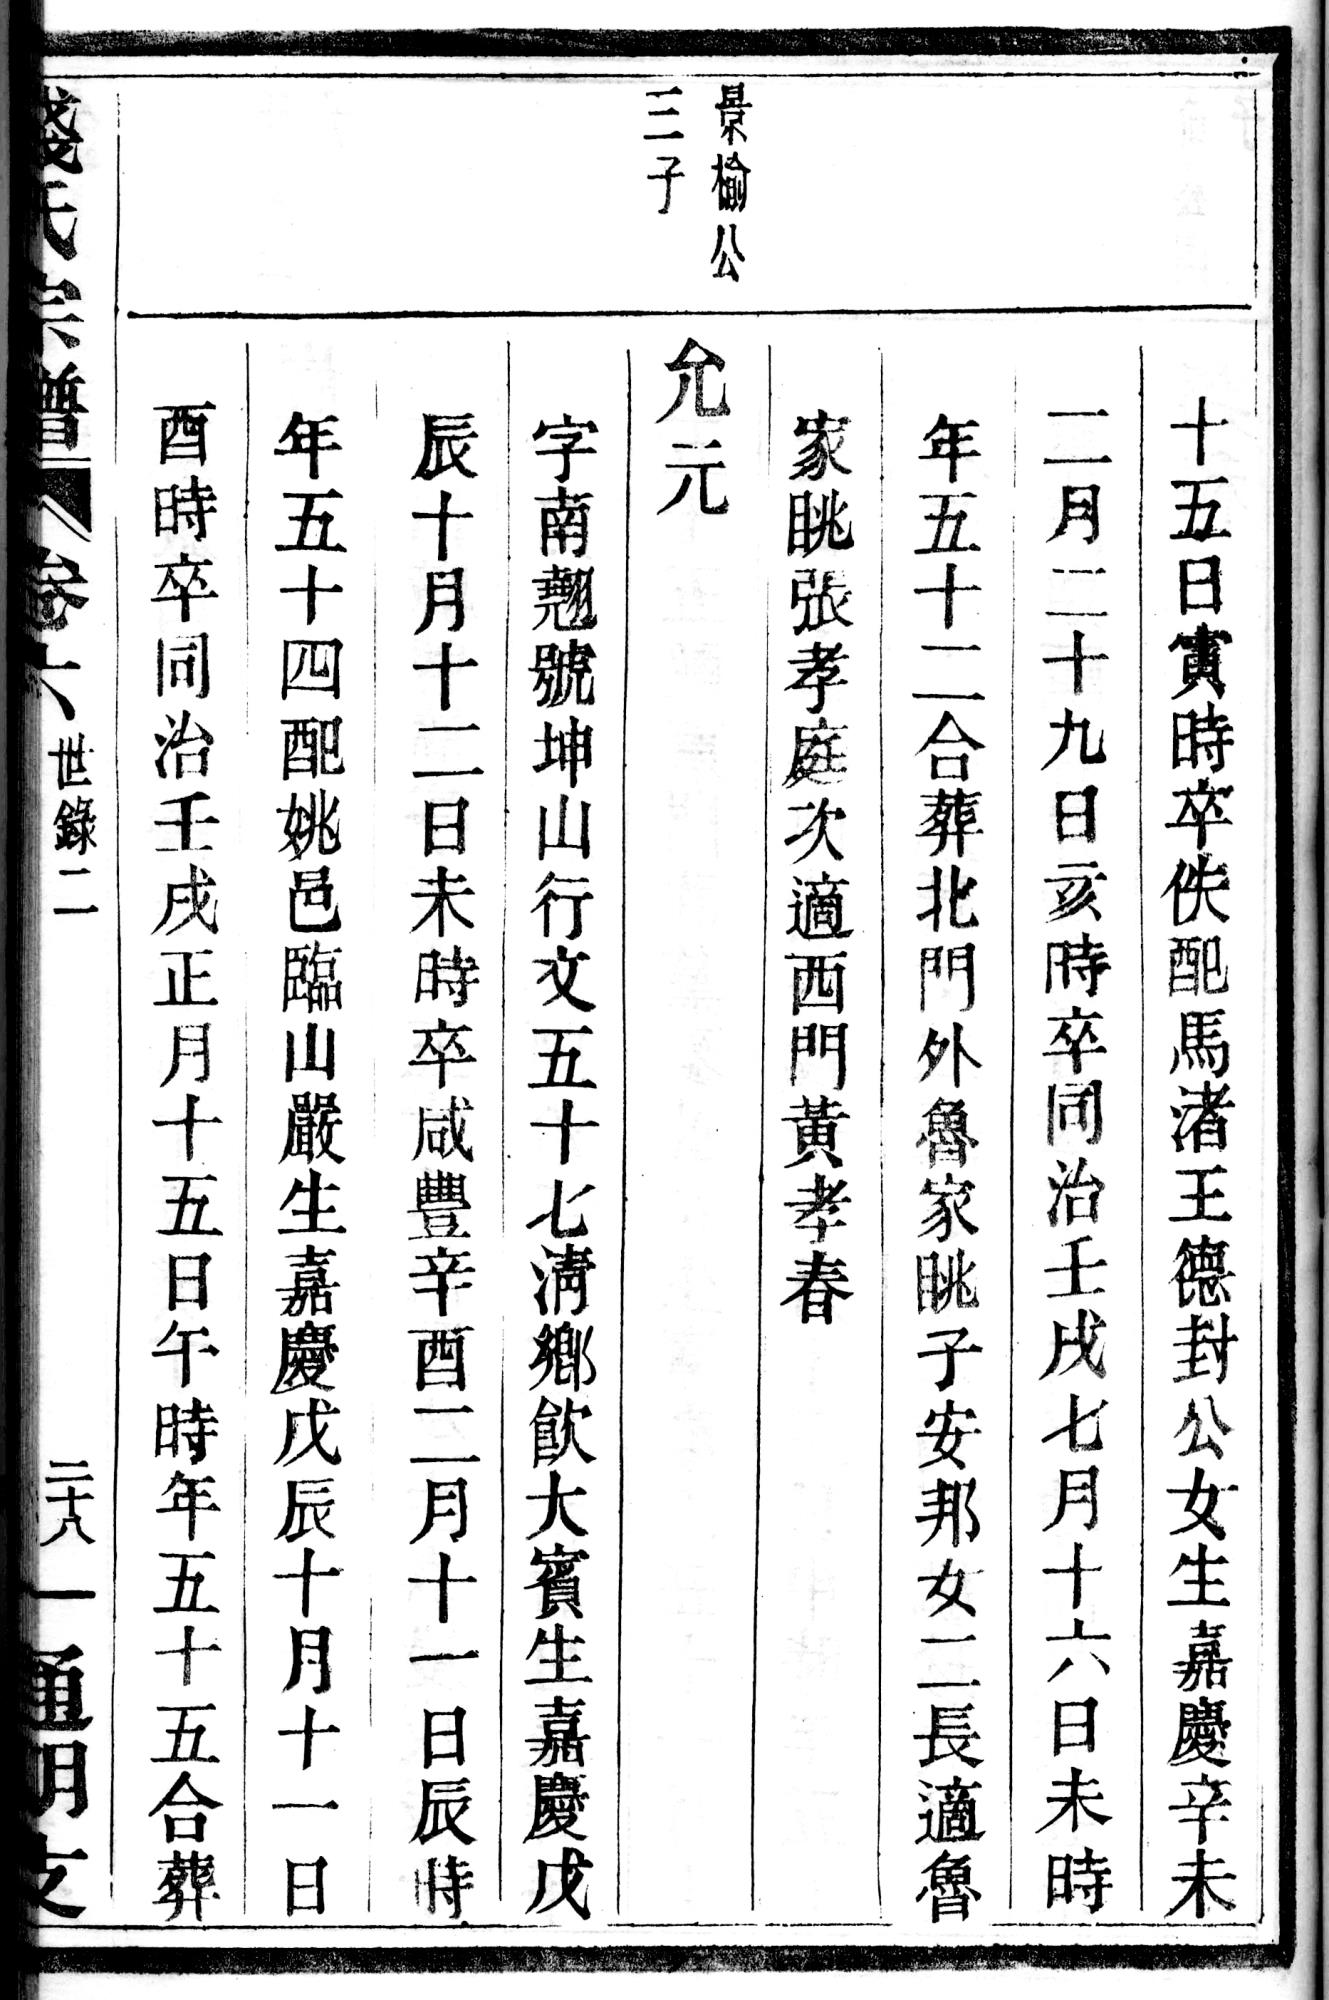 景榆公
三子
十五日寅時卒佚配馬渚王德封公女生嘉慶辛未
二月二十九日亥時卒同治壬戌七月十六日未時
年五十二合葬北門外魯家眺子安邦女二長適魯
家眺張孝庭次適西門黃孝春
允元
字南翹號坤山行文五十七清鄉飲大賓生嘉慶戊
辰十月十二日未時卒咸豐辛酉二月十一日辰時
年五十四配姚邑臨山嚴生嘉慶戊辰十月十一日
酉時卒同治壬戌正月十五日午時年五十五合葬
錢氏宗譜 卷六 世錄二 二十八 通明支